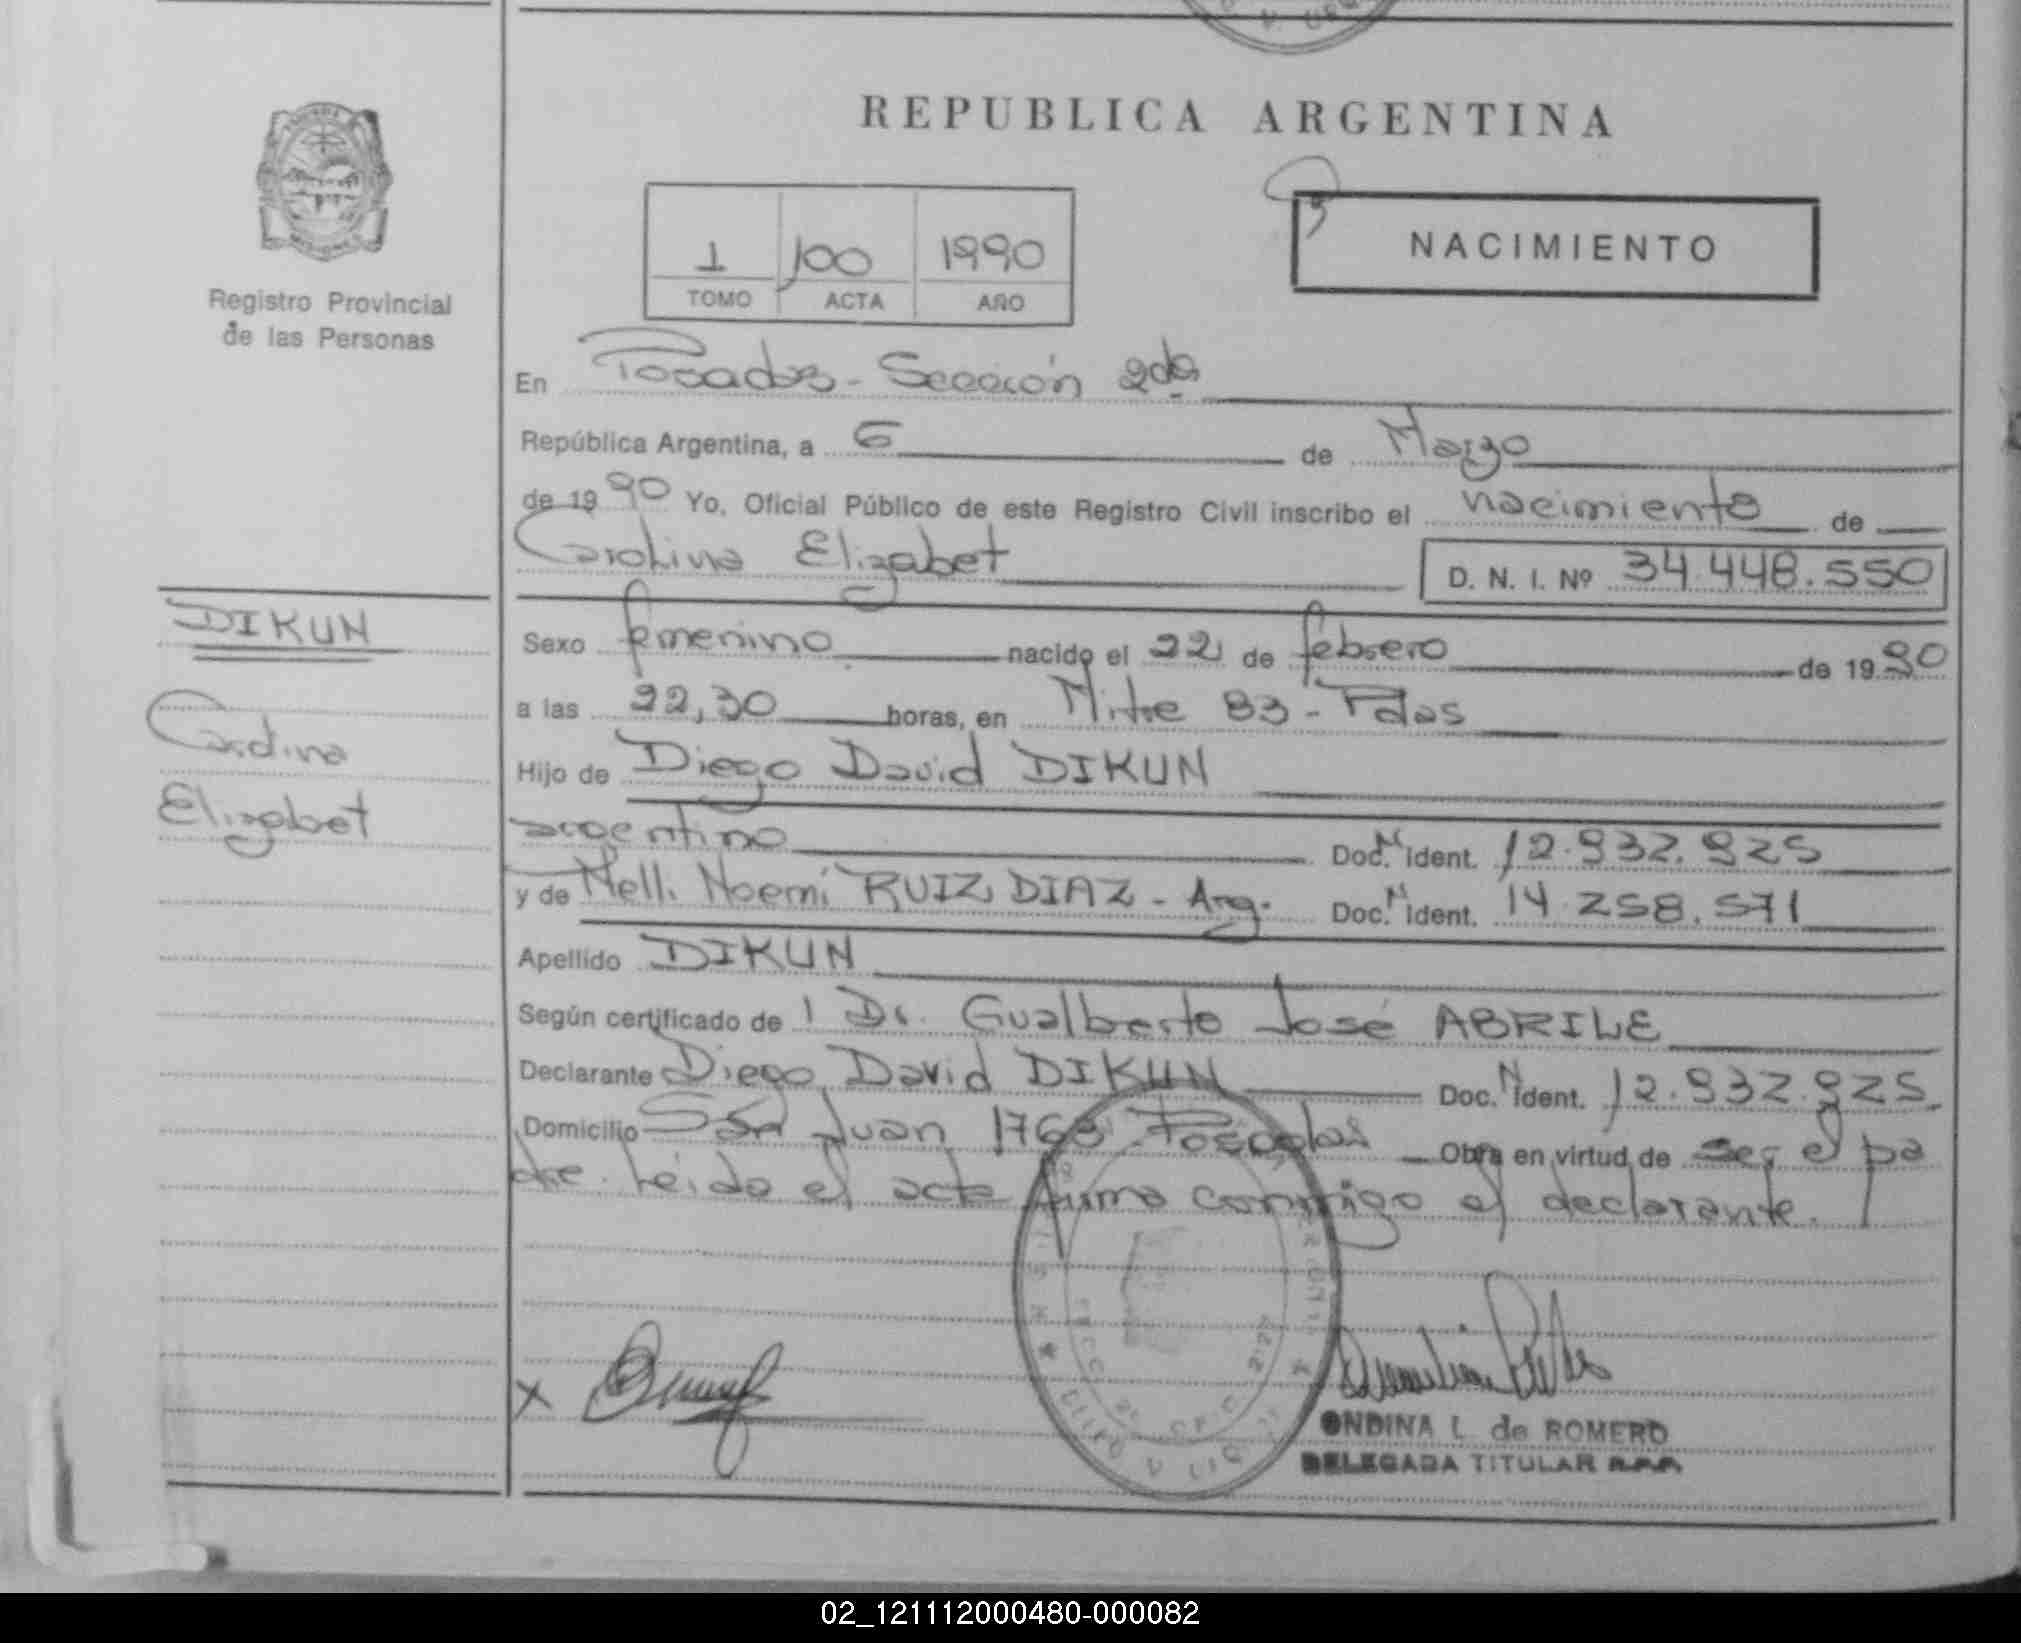 REPUBLICA ARGENTINA
NACIMIENTO
1 100 1990
TOMO ACTA AÑO
Registro Provincial
de las Personas
En Posadas - Sección 2da
República Argentina, a 6 de Marzo
de 1990 Yo, Oficial Público de este Registro Civil inscribo el nacimiento de
Carolina Elizabet D. N. I. Nº 34.448.550
DIKUN
Carolina
Elizabet
Sexo femenino nacido el 22 de febrero de 1990
a las 22,30 horas, en Mitre 83 - Pdas
Hijo de Diego David DIKUN
argentino Doc. N Ident. 12.932.925
y de Nelli Noemí RUIZ DIAZ - Arg. Doc. N Ident. 14.258.571
Apellido DIKUN
Según certificado de 1 Dr. Gualberto José ABRILE
Declarante Diego David DIKUN Doc. N Ident. 12.932.925
Domicilio San Juan 1768 - Posadas Obra en virtud de ser el pa
dre. Leída el acta firma conmigo el declarante.
X
ONDINA L. de ROMERO
DELEGADA TITULAR R.P.P.
02_121112000480-000082